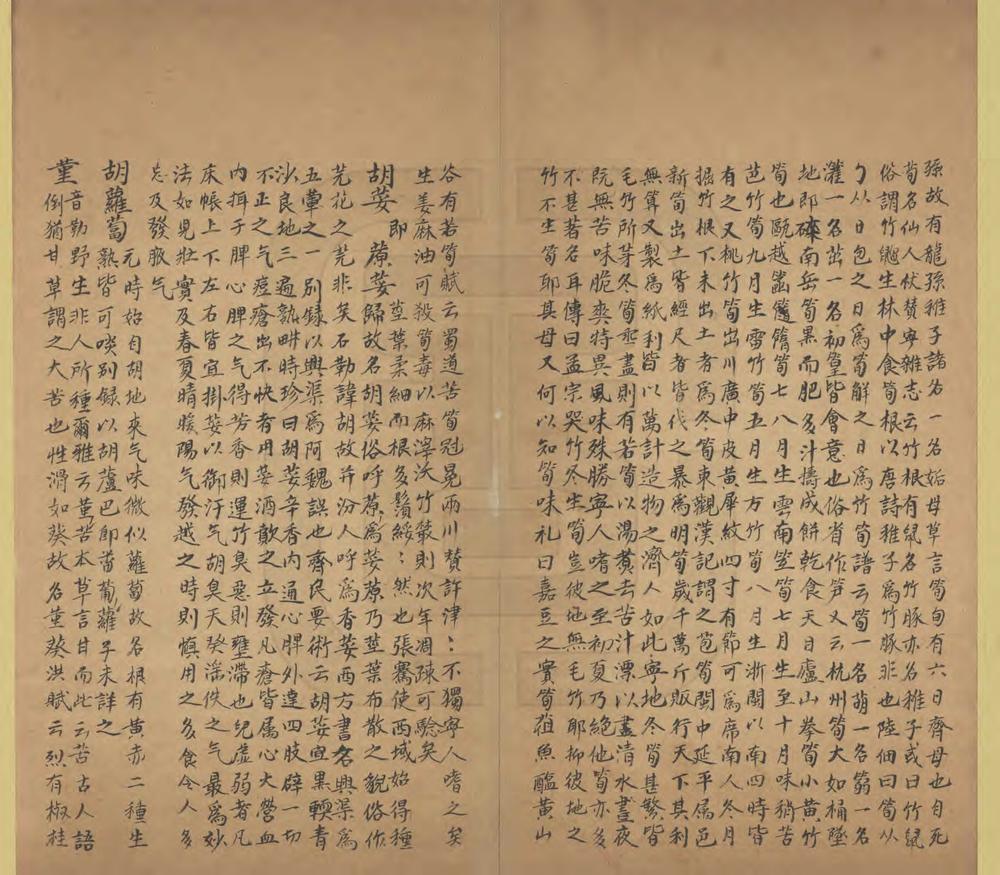 孫故有龍孫稚子諸名一名妬母草言筍旬有六日齊母也自死
筍名仙人伏賛寧雜志云竹根有鼠名竹豚亦名稚子或曰竹鼠
俗謂竹䶉生林中食筍根以唐詩稚子爲竹豚非也陸佃曰筍从
勹从日包之日爲筍解之日爲竹筍譜云筍一名萌一名篛一名
䉋一名茁一名初篁皆會意也俗省作笋又云杭州筍大如桶墜
地即碎南岳筍黑而肥多汁擣成餅乾食天目廬山拳筍小黄竹
筍也甌越䈽䉫䈼筍七八月生雲南笠筍七月生至十月味稍苦
芭竹筍九月生雪竹筍五月生方竹筍八月生浙閩以南四時皆
有之又桃竹筍出川廣中皮黄犀紋四寸有節可爲席南人冬月
掘竹根下未出土者爲冬筍東觀漢記謂之苞筍閩中延平属邑
新筍出土胥經尺者皆伐之暴爲明筍歲千萬斤販行天下其利
無算又製爲紙利皆以萬計造物之濟人如此寧地冬筍甚繁皆
毛竹所芽冬筍乖盡則有若筍以湯煑去苦汁漂以盡清水晝夜
旣無苦味脆爽特異風味殊勝寧人嗜之至初夏乃絕他筍亦多
不甚著名耳傳曰孟宗哭竹冬生筍豈彼地無毛竹耶抑彼地之
竹不生筍耶其母又何以知筍味礼曰嘉豆之實筍菹魚醢黄山
谷有若筍賦云蜀道苦筍冠冕兩川賛許津：不獨寧人嗜之矣
生姜麻油可殺筍毒以麻滓沃竹叢則次年凋疎可驗矣
胡荽 即蒝荽莖葉柔細而根多鬚綏：然也張騫使西域始得種
歸故名胡荽俗呼蒝爲荽蒝乃莖葉布散之貌俗作
芫花之芫非矣石勒諱胡故幷汾人呼爲香荽西方書名興渠爲
五葷之一別録以興渠爲阿魏誤也齊民要術云胡荽宜黑輭青
沙良地三遍熟畊時珍曰胡荽辛香内通心脾外達四肢辟一切
不正之气痘瘡出不快者用荽酒歕之立發凡瘡皆属心火營血
内揖于脾心脾之气得芳香則運竹臭惡則壅滯也兒虚弱者凡
床帳上下左右皆宜掛荽以御汗气胡臭天癸滛佚之气最爲妙
法如兒壯實及春夏晴暖陽气發越之時則慎用之多食令人多
忘及發腋气
胡蘿蔔 元時始自胡地来气味微似蘿蔔故名根有黄赤二種生
熟皆可啖別録以胡蘆巴即葡蔔蘿子未詳之
堇 音勤野生非人所種爾雅云堇苦本草言甘而此云苦古人語
倒猶甘草謂之大苦也性滑如葵故名堇葵洪賦云烈有椒桂